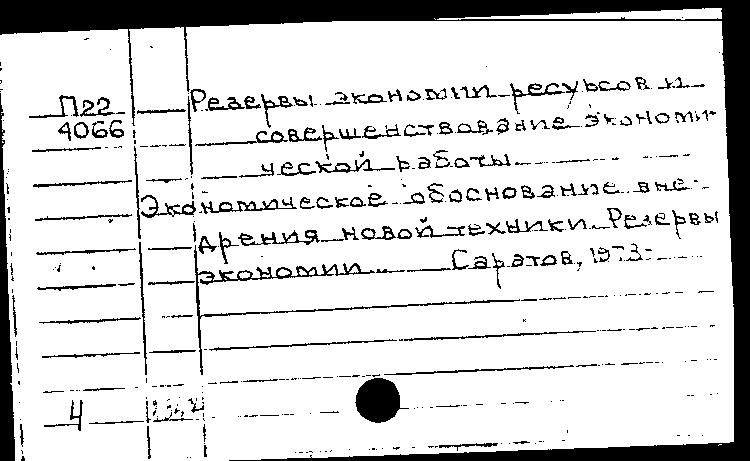 П22 Резервы экономии ресурсов и
4066 совершенствование экономи-
ческой работы.
Экономическое обоснование вне-
дрения новой техники. Резервы
экономии... Саратов, 1973-
4